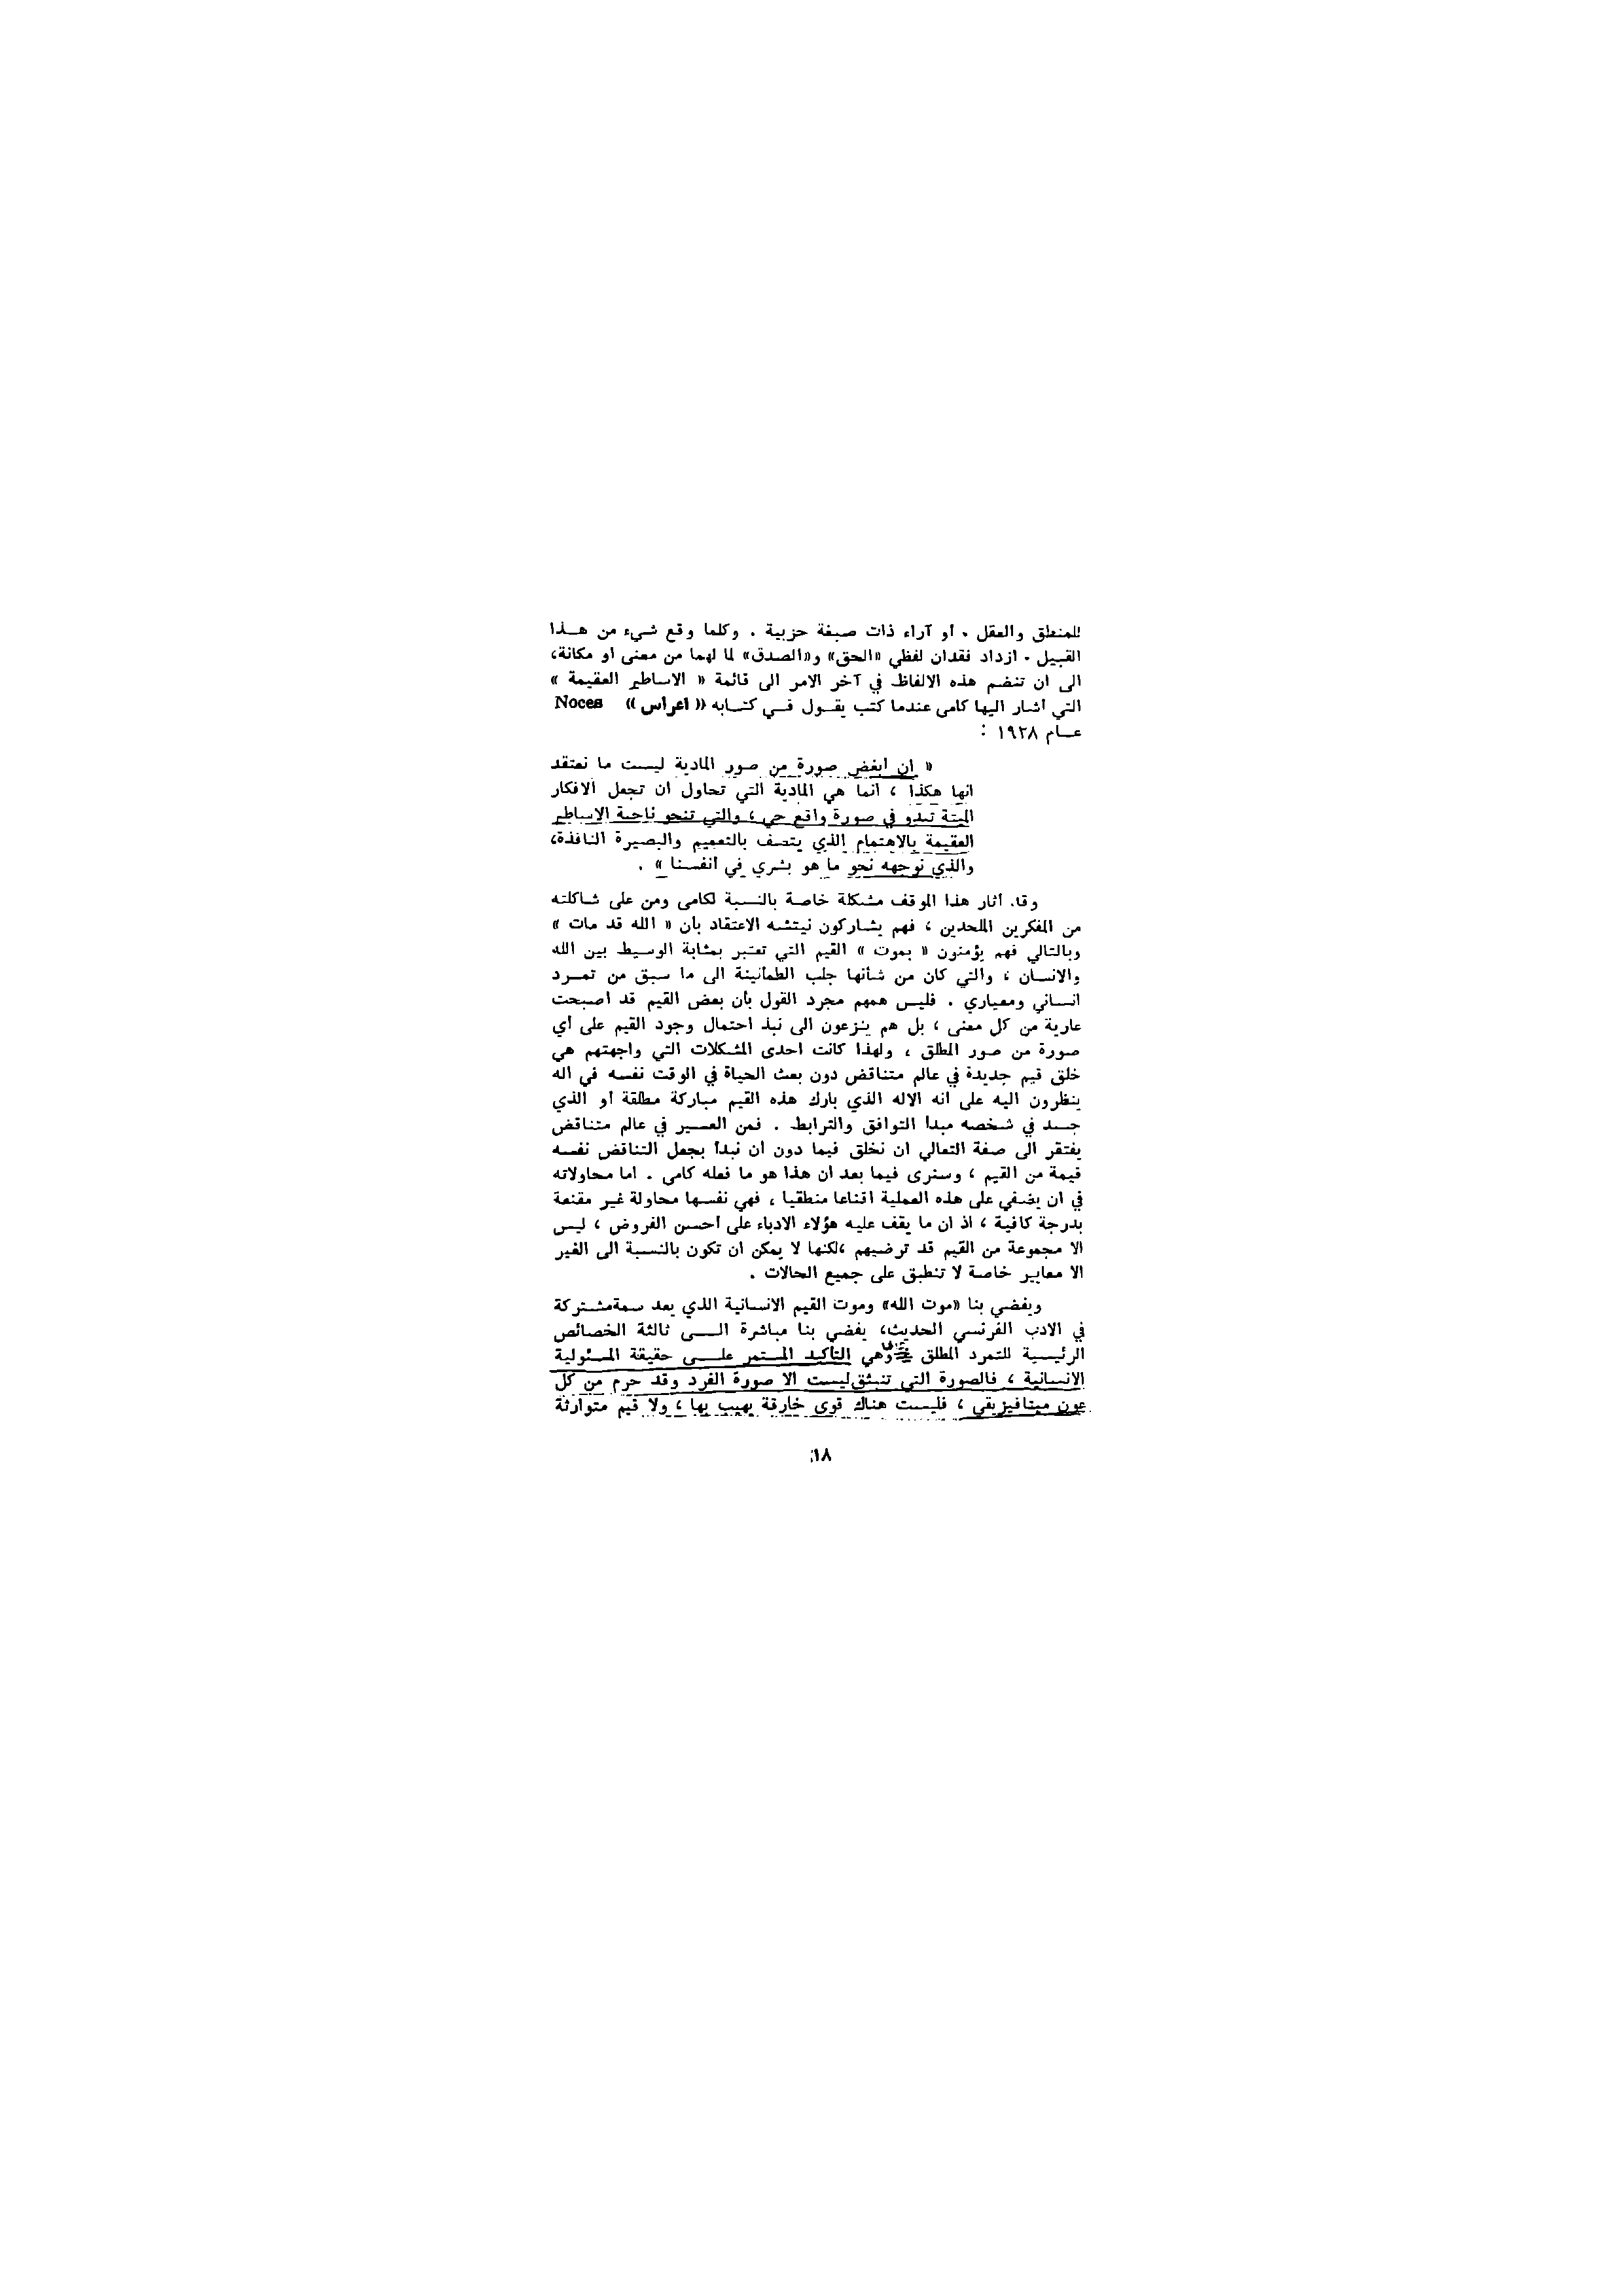 للمنطق والعقل . أو آراء ذات صبغة حزبية . وكلما وقع شيء من هــذا
القبيل . ازداد فقدان لفظي «الحق» و«الصدق» لما لهما من معنى أو مكانة،
الى ان تنضم هذه الالفاظ في آخر الامر الى قائمة « الاساطير العقيمة »
التي أشار اليها كامى عندما كتب يقــول فــي كتــابه « اعراس » Noces
عــام ١٩٣٨ :
« ان ابغض صورة من صور المادية ليست ما نعتقد
انها هكذا ، انما هي المادية التي تحاول ان تجعل الافكار
الميتة تبدو في صورة واقع حي ، والتي تنحو ناحية الاساطير
العقيمة بالاهتمام الذي يتصف بالتعميم والبصيرة النافذة،
والذي نوجهه نحو ما هو بشري في أنفسنا » .
وقد أثار هذا الموقف مشكلة خاصة بالنسبة لكامى ومن على شاكلته
من المفكرين الملحدين ، فهم يشاركون نيتشه الاعتقاد بأن « الله قد مات »
وبالتالي فهم يؤمنون « بموت » القيم التي تعتبر بمثابة الوسيط بين الله
والانسان ، والتي كان من شأنها جلب الطمأنينة الى ما سبق من تمــرد
انساني ومعياري . فليس همهم مجرد القول بأن بعض القيم قد اصبحت
عارية من كل معنى ، بل هم ينزعون الى نبذ احتمال وجود القيم على أي
صورة من صور المطلق ، ولهذا كانت احدى المشكلات التي واجهتهم هي
خلق قيم جديدة في عالم متناقض دون بعث الحياة في الوقت نفسه في اله
ينظرون اليه على انه الاله الذي بارك هذه القيم مباركة مطلقة أو الذي
جسد في شخصه مبدأ التوافق والترابط . فمن العسير في عالم متناقض
يفتقر الى صفة التعالي ان نخلق قيما دون ان نبدأ بجعل التناقض نفسه
قيمة من القيم ، وسنرى فيما بعد ان هذا هو ما فعله كامى . اما محاولاته
في ان يضفي على هذه العملية اقناعا منطقيا ، فهي نفسها محاولة غير مقنعة
بدرجة كافية ، اذ ان ما يقف عليه هؤلاء الادباء على أحسن الفروض ، ليس
الا مجموعة من القيم قد ترضيهم ،لكنها لا يمكن ان تكون بالنسبة الى الغير
الا معايير خاصة لا تنطبق على جميع الحالات .
ويفضي بنا «موت الله» وموت القيم الانسانية الذي يعد سمةمشتركة
في الادب الفرنسي الحديث، يفضي بنا مباشرة الــى ثالثة الخصائص
الرئيسية للتمرد المطلق وهي التأكيد المستمر علــى حقيقة المسئولية
الانسانية ، فالصورة التي تنبثق ليست الا صورة الفرد وقد حرم من كل
عون ميتافيزيقي ، فليست هناك قوى خارقة يهيب بها ، ولا قيم متوارثة
١٨